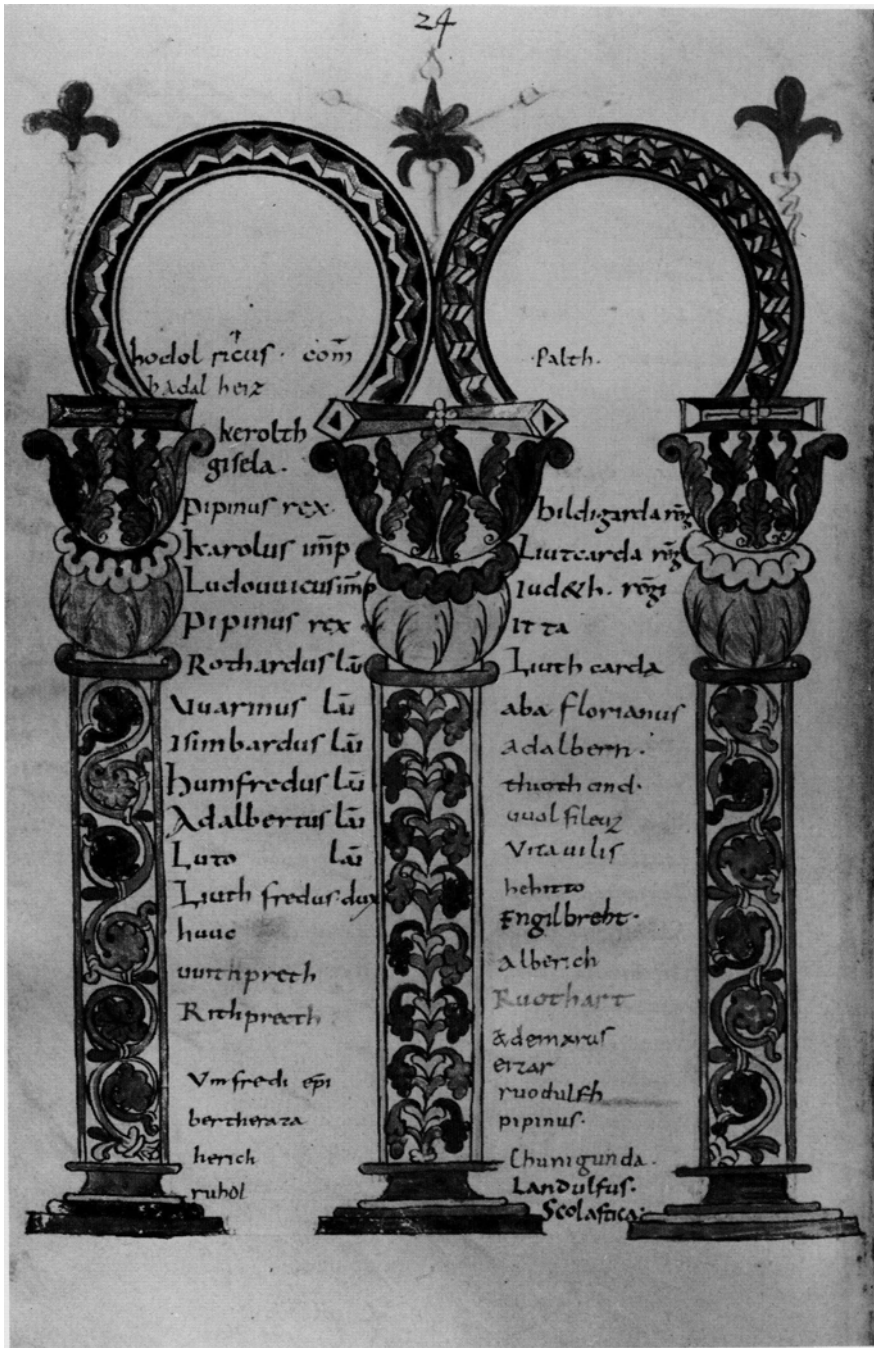 24
hodolricus · com̄
hadalheiz
kerolth
gisela ·
pipinus rex ·
karolus imp̄
Ludouuicus imp̄
Pipinus rex
Rothardus laī
Uuarinus laī
Isimbardus laī
hunfredus laī
Adalbertus laī
Luto laī
Liuthfredus · dux
huuc
uuithpreth
Rithpreth
Vnfredi ep̄i
bertheraza
herich
ruhol
· Palth ·
hildigarda reḡ
Liutcarda reḡ
Iud&h · reḡi
Itta
Liuthcarda
aba florianus
Adalbern ·
thuoth
Vitauilis
hehitto
Engilbreht ·
Alberich
Ruothart
Ademarus
eizar
ruodulfh
pipinus ·
Chunigunda ·
Landulfus ·
Scolastica ·